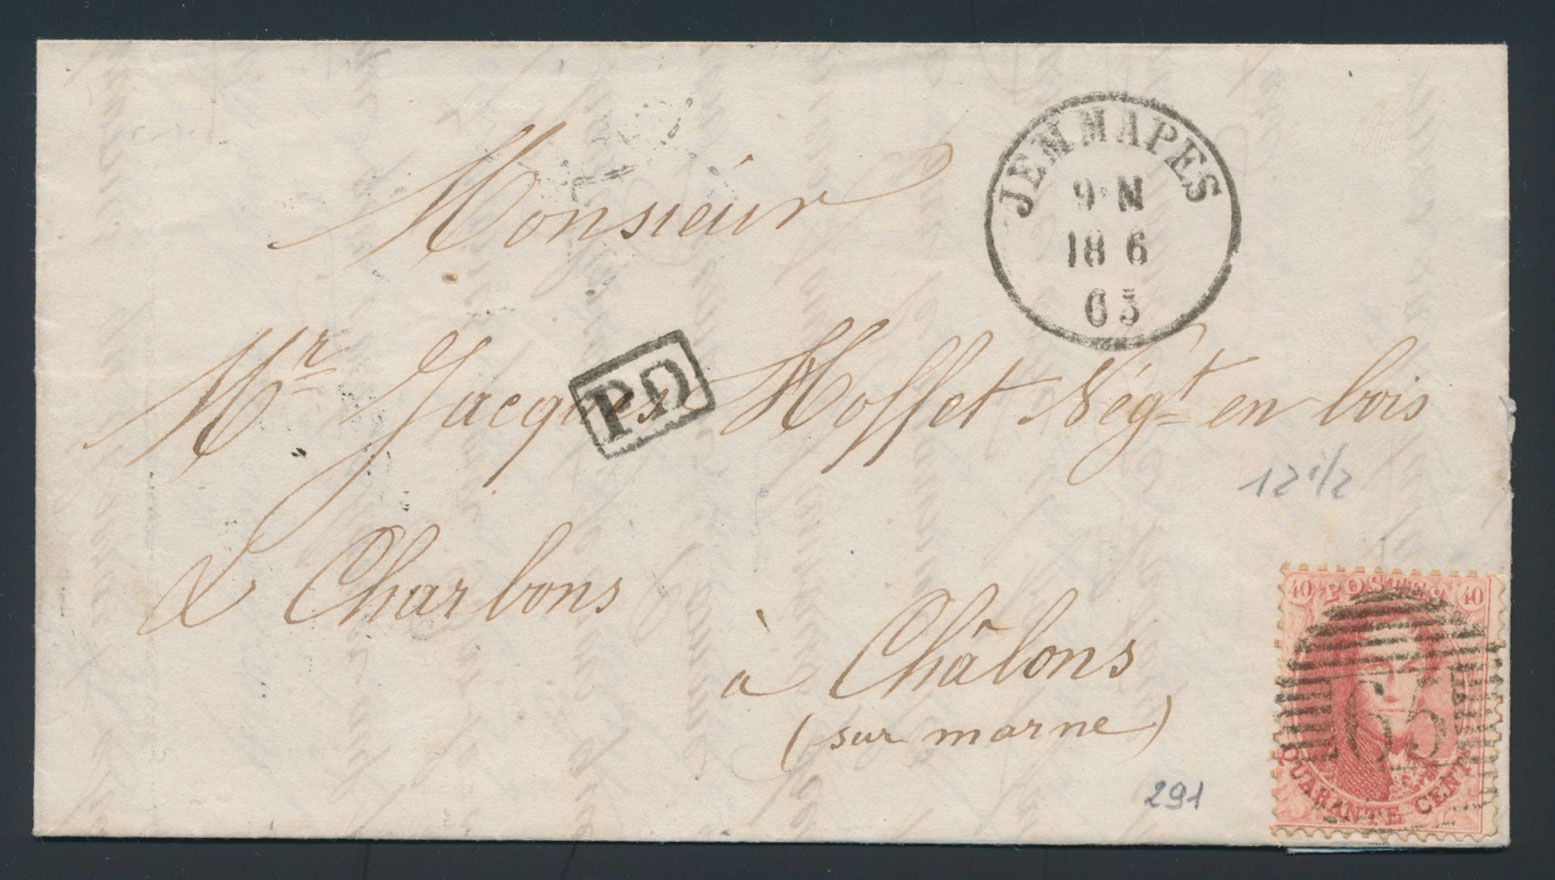 JEMMAPES
9 N
18 6
63
Monsieur
P.D
Mr Jacques Hoffet Négt en bois
& Charbons
12 1/2
à Châlons
(sur marne)
291
40 POSTES 40
65
QUARANTE CENTS